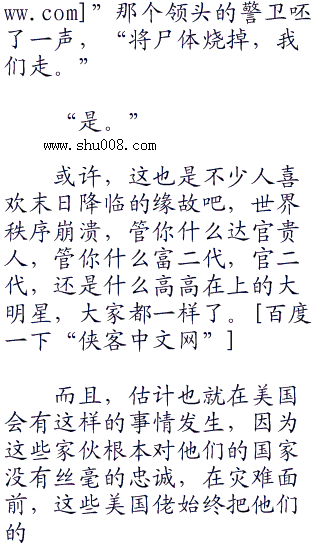 ww.com]”那个领头的警卫呸
了一声，“将尸体烧掉，我
们走。”
“是。”
www.shu008.com
或许，这也是不少人喜
欢末日降临的缘故吧，世界
秩序崩溃，管你什么达官贵
人，管你什么富二代，官二
代，还是什么高高在上的大
明星，大家都一样了。[百度
一下“侠客中文网”]
而且，估计也就在美国
会有这样的事情发生，因为
这些家伙根本对他们的国家
没有丝毫的忠诚，在灾难面
前，这些美国佬始终把他们
的